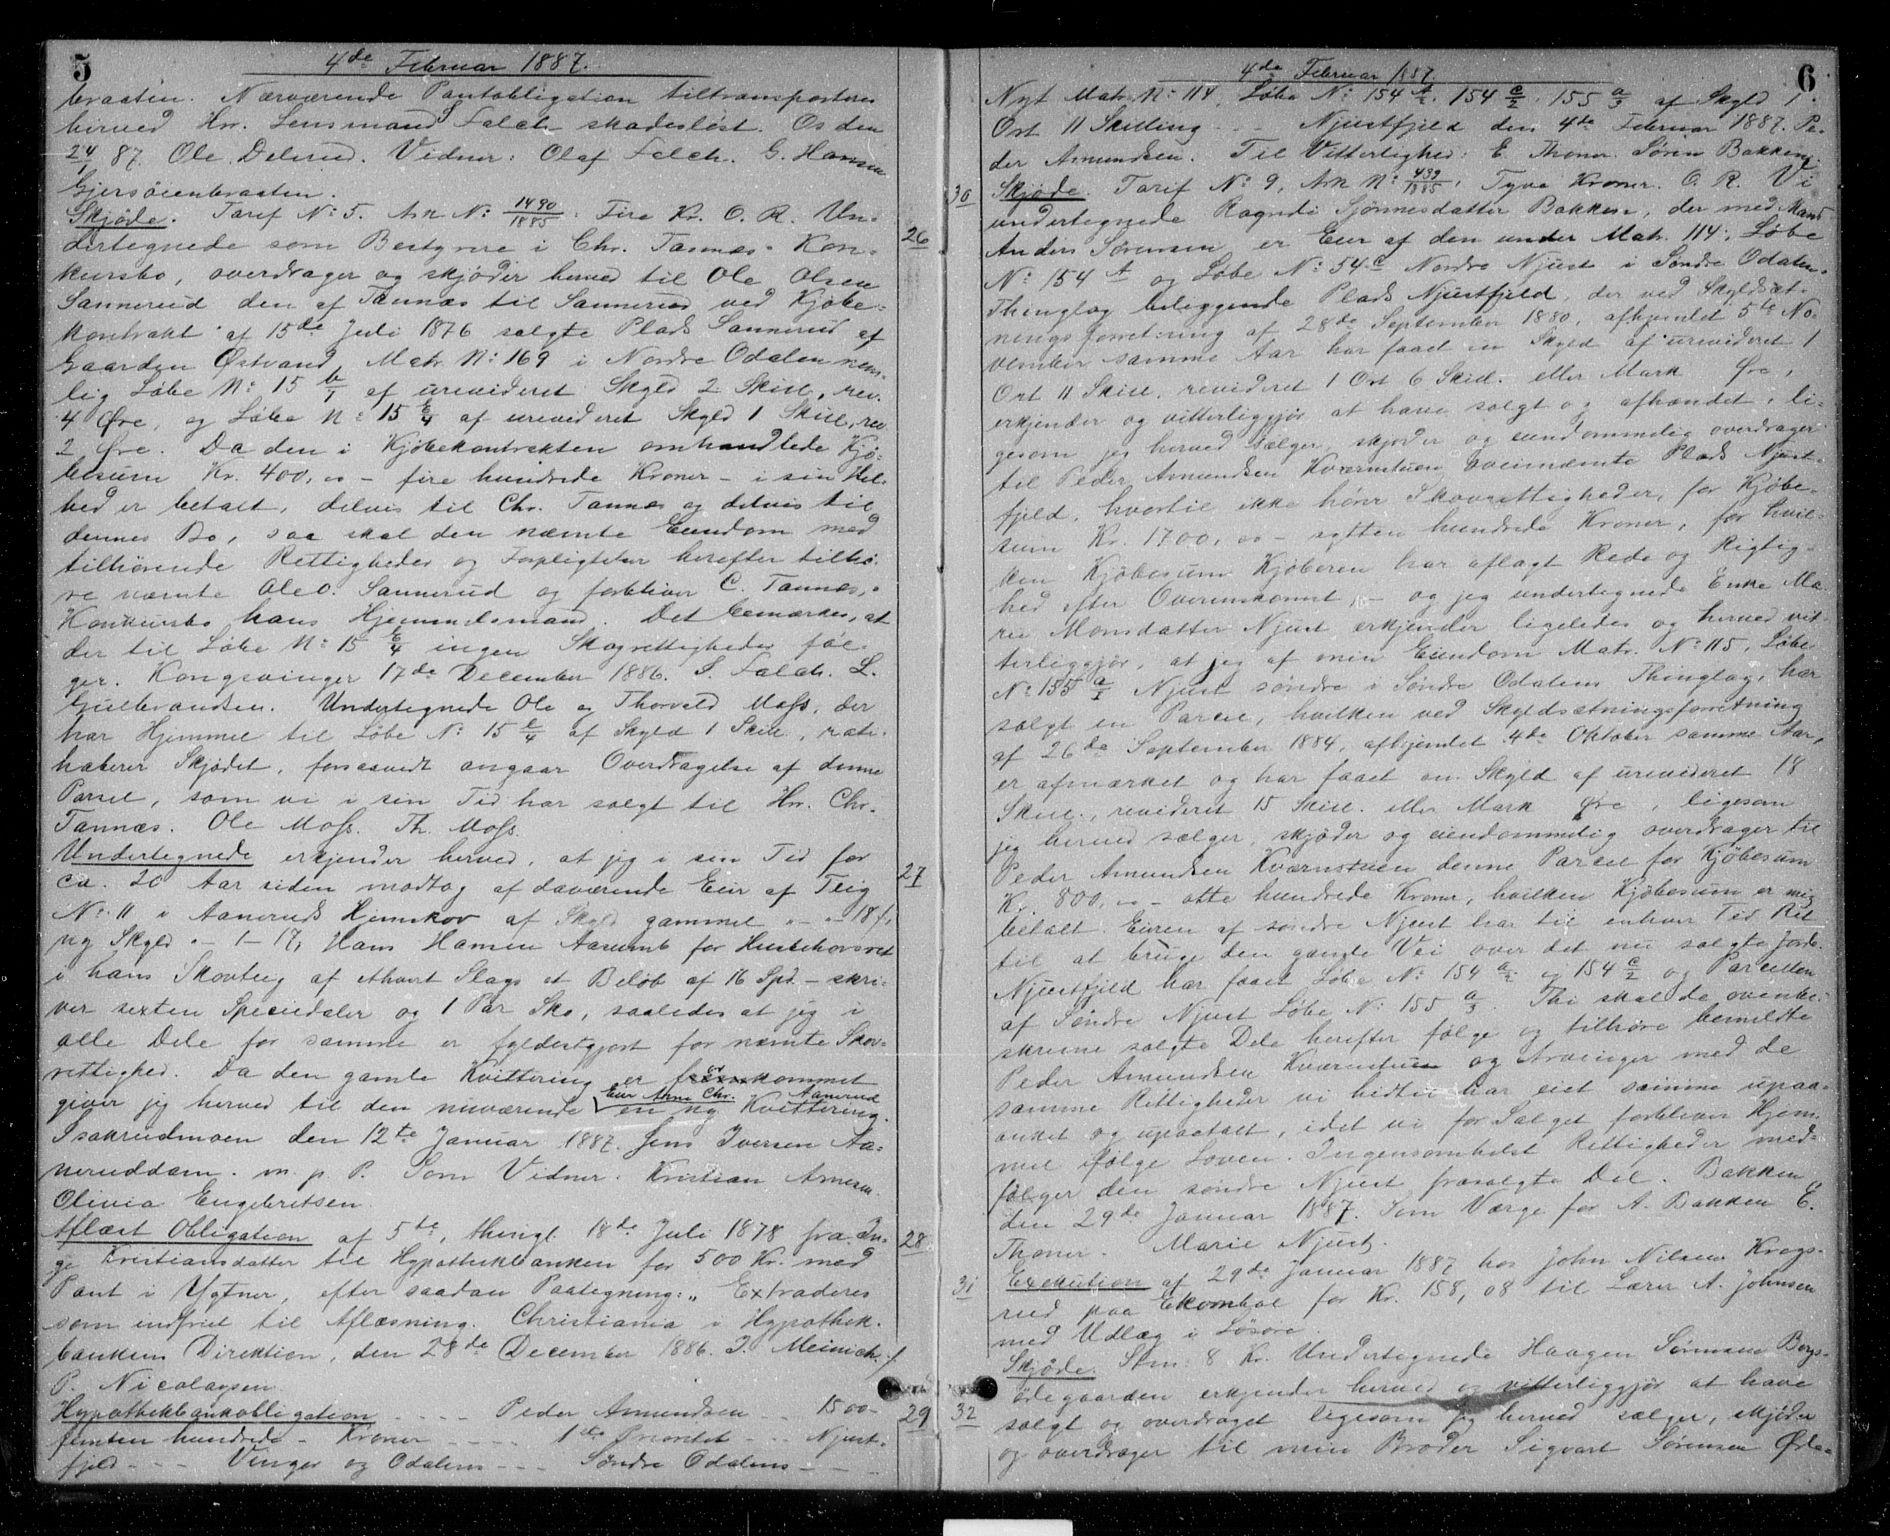 5
4de Februar 1887.
braaten. Nærværende Pantobligation tiltransporteres
herved Hr. Lensmand Falch skadesløst. Os den
24/1 87. Ole Delerud. Vidner: Olaf Falch. G. Hansen
Gjersøienbraaten.
26
Skjøde. Tarif No 5. Ark No 1490/1885: Fire Kr. O. R. Un-
dertegnede som Bestyrere i Chr. Tannæs' Kon-
kursbo, overdrager og skjøder herved til Ole Olsen
Sannerud den af Tannæs til Sannerud ved Kjøbe-
kontrakt af 15de Juli 1876 solgte Plads Sannerud af
Gaarden Østvand Matr. No 169 i Nordre Odalen nem-
lig Løbe No 15 b/1 af urevideret Skyld 2 Skill, rev.
4 Øre, og Løbe No 15 c/4 af urevideret Skyld 1 Skill, rev
2 Øre. Da den i Kjøbekontrakten omhandlede Kjø-
besum Kr. 400,00 - fire hundrede Kroner - i sin Hel-
hed er betalt, delvis til Chr. Tannæs og delvis til
dennes Bo, saa skal den nævnte Eiendom med
tilhørende Rettigheder og Forpligtelser herefter tilhø-
re nævnte Ole O. Sannerud og forbliver C. Tannæs'
Konkursbo hans Hjemmelsmand. Det bemærkes, at
der til Løbe No 15 c/4 ingen Skogrettigheder føl-
ger. Kongsvinger 17de December 1886. S. Falch. L.
Gulbrandsen. Undertegnede Ole og Thorvald Moss, der
har Hjemmel til Løbe No 15 c/4 af Skyld 1 Skill, rati-
haberer Skjødet, forsaavidt angaar Overdragelse af denne
Parsel, som vi i sin Tid har solgt til Hr. Chr.
Tannæs. Ole Moss. Th. Moss.
27
Undertegnede erkjender herved, at jeg i sin Tid for
ca. 20 Aar siden modtog af daværende Eier af Teig
No 11 i Aaneruds Hjemskov af Skyld gammel - - 18 f,
ny Skyld - 1 - 17, Hans Hansen Aanerud for Hustehovsret
i hans Skovteig af ethvert Slags et Beløb af 16 Spd. - skri-
ver sexten Speciedaler og 1 Par Sko, saaledes at jeg i
alle Dele for samme er fyldestgjort for nævnte Skov-
rettighed. Da den gamle Kvittering er bortkommet
giver jeg herved til den nuværende Eier Anne Chr. Aanerud en ny Kvittering.
Isakrudmoen den 12te Januar 1887. Jens Iversen Aa-
neruddam. m. p. P. Som Vidner. Kristian Arnesen.
Olivia Engebretsen.
28
Aflæst Obligation af 5te, thingl. 18de Juli 1878 fra In-
ge Kristiansdatter til Hypothekbanken for 500 Kr. med
Pant i Ygtner, efter saadan Paategning: „Extraderes
som indfriet til Aflæsning. Christiania i Hypothek-
bankens Direktion, den 28de December 1886. I. Meinich. /
P. Nicolaysen
29
Hypothekbankobligation - - - - Peder Amundsen 1500-
femten hundrede - Kroner - - - - 1ste Prioritet - - Njust-
fjeld - - - Vinger og Odalens - - - Søndre Odalens - - -
6
4de Februar 1887.
Nyt Matr. No 114, Løbe No 154 a/2, 154 c/2, 155 a/3 af Skyld 1
Ort 11 Skilling - - - Njustfjeld den 4de Februar 1887. Pe-
der Amundsen. Til Vitterlighed: E. Thoner. Søren Bakken.
30
Skjøde. Tarif No 9, Ark No 439/1885, Tyve Kroner. O. R. Vi
undertegnede Ragndi Sjønnesdatter Bakken, der med Mand
Anders Sørensen er Eier af den under Matr. 114, Løbe
No 154 A og Løbe No 54 c Nordre Njust i Søndre Odalens
Thinglag beliggende Plads Njustfjeld, der ved Skyldsæt-
ningsforretning af 28de September 1880, afhjemlet 5te No-
vember samme Aar har faaet en Skyld af urevideret 1
Ort 11 Skill, revideret 1 Ort 6 Skill. eller Mark Øre,
erkjender og vitterliggjør at have solgt og afhændet, li-
gesom jeg herved sælger, skjøder og eiendommelig overdrager
til Peder Amundsen Kværnstuen ovennævnte Plads Njust-
fjeld, hvortil ikke hører Skovrettigheder, for Kjøbe-
sum Kr. 1700,00 - sytten hundrede Kroner, for hvil-
ken Kjøbesum Kjøberen har aflagt Rede og Rigtig-
hed efter Overenskomst - og jeg undertegnede Enke Ma-
rie Monsdatter Njust erkjender ligeledes og herved vit-
terliggjør, at jeg af min Eiendom Matr. No 115, Løbe
No 155 a/1 Njust søndre i Søndre Odalens Thinglag, har
solgt en Parcel, hvilken ved Skyldsætningsforretning
af 26de September 1884, afhjemlet 4de Oktober samme Aar,
er afmærket og har faaet en Skyld af urevideret 18
Skill., revideret 15 Skill. eller Mark Øre, ligesom
jeg herved sælger, skjøder og eiendommelig overdrager til
Peder Amundsen Kværnstuen denne Parcel for Kjøbesum
Kr. 800,00 - otte hundrede Kroner, hvilken Kjøbesum er mig
betalt. Eieren af søndre Njust har til enhver Tid Ret
til at bruge den gamle Vei over det nu solgte Jorde.
Njustfjeld har faaet Løbe No 154 a/2 og 154 c/2 og Parcellen
af Søndre Njust Løbe No 155 a/3. Thi skal de ovenbe-
skrevne solgte Dele herefter følge og tilhøre bemeldte
Peder Amundsen Kværnstuen og Arvinger med de
samme Rettigheder vi hidtil har eiet samme upaa-
anket og upaatalt, idet vi for Salget forbliver Hjem-
mel ifølge Loven. Ingensomhelst Rettigheder med-
følger den søndre Njust frasolgte Del. Bakken
den 29de Januar 1887. Som Værge for A. Bakken E.
Thoner. Marie Njust.
31
Exekution af 29de Januar 1887 hos John Nilsen Krogs-
rud paa Ekornhol for Kr. 158,08 til Lærer A. Johnsen
med Udlæg i Løsøre.
32
Skjøde. Stm: 8 Kr. Undertegnede Haagen Sørensen Bergs-
ødegaarden erkjender herved og vitterliggjør at have
solgt og overdraget ligesom jeg herved sælger, skjøder
og overdrager til min Broder Sigvart Sørensen